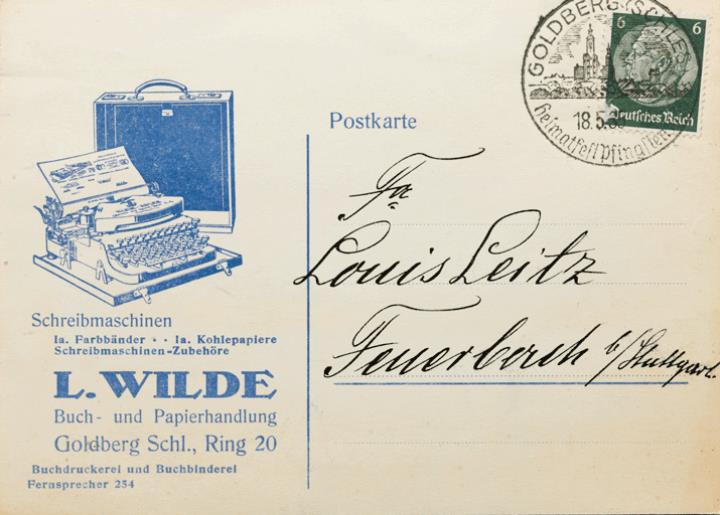 Schreibmaschinen
Ia. Farbbänder · · Ia. Kohlepapiere
Schreibmaschinen-Zubehöre
L. WILDE
Buch- und Papierhandlung
Goldberg Schl., Ring 20
Buchdruckerei und Buchbinderei
Fernsprecher 254
Postkarte
GOLDBERG (SCHLES
18.5.
Heimatfest Pfingsten
6 6
Deutsches Reich
Fa
Louis Leitz
Feuerbach b/Stuttgart.